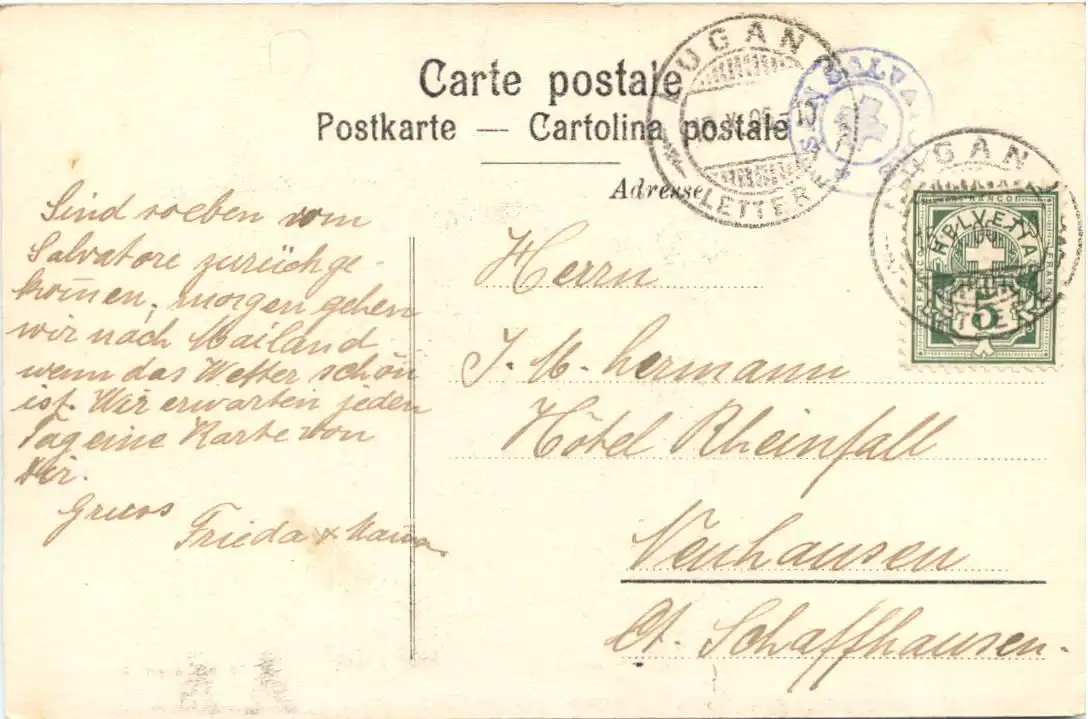 Carte postale
Postkarte — Cartolina postale
Adresse
LUGANO
LETTERE
SALVATORE
LUGANO
FRANCO
HELVETIA
5
Sind soeben vom
Salvatore zurückge-
kom̄en, morgen gehen
wir nach Mailand
wenn das Wetter schön
ist. Wir erwarten jeden
Tag eine Karte von
dir.
Gruss
Frieda & Mam̄a
Herrn
J. M. hermann
Hôtel Rheinfall
Neuhausen
Ct. Schaffhausen.